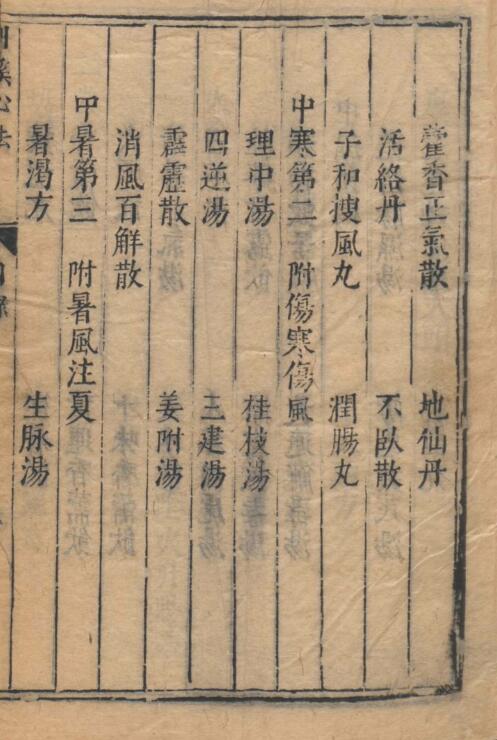 藿香正氣散　地仙丹
活絡丹　不臥散
子和搜風丸　潤腸丸
中寒第二　附傷寒傷風
理中湯　桂枝湯
四逆湯　三建湯
霹靂散　姜附湯
消風百解散
中暑第三　附暑風注夏
暑渴方　生脉湯
心法